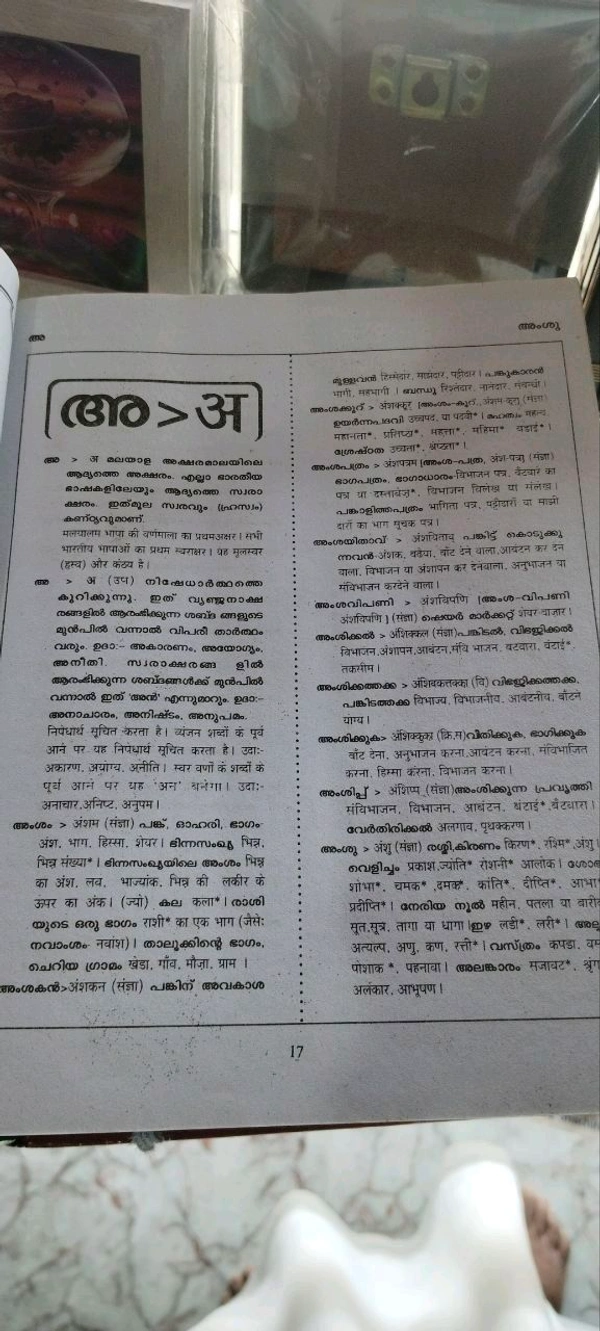 അ
അംശു
അ>अ
അ > अ മലയാള അക്ഷരമാലയിലെ
ആദ്യത്തെ അക്ഷരം. എല്ലാ ഭാരതീയ
ഭാഷകളിലേയും ആദ്യത്തെ സ്വരാ
ക്ഷരം. ഇത്മൂല സ്വരവും (ഹ്രസ്വം)
കണ്ഠ്യവുമാണ്.
मलयालम भाषा की वर्णमाला का प्रथमअक्षर। सभी
भारतीय भाषाओं का प्रथम स्वराक्षर। यह मूलस्वर
(ह्रस्व) और कंठ्य है।
അ > अ (उप) നിഷേധാർത്ഥത്തെ
കുറിക്കുന്നു. ഇത് വ്യഞ്ജനാക്ഷ
രങ്ങളിൽ ആരംഭിക്കുന്ന ശബ്ദ ങ്ങളുടെ
മുൻപിൽ വന്നാൽ വിപരീ താർത്ഥം
വരും. ഉദാ:- അകാരണം, അയോഗ്യം,
അനീതി. സ്വരാക്ഷരങ്ങ ളിൽ
ആരംഭിക്കുന്ന ശബ്ദങ്ങൾക്ക് മുൻപിൽ
വന്നാൽ ഇത് 'അൻ' എന്നുമാറും. ഉദാ:-
അനാചാരം, അനിഷ്ടം, അനുപമം.
निषेधार्थ सूचित करता है। व्यंजन शब्दों के पूर्व
आने पर यह निषेधार्थ सूचित करता है। उदाः-
अकारण, अयोग्य, अनीति। स्वर वर्णों के शब्दों के
पूर्व आने पर यह 'अन' बनेगा। उदाः-
अनाचार,अनिष्ट, अनुपम।
അംശം > अंशम (संज्ञा) പങ്ക്, ഓഹരി, ഭാഗം-
अंश, भाग, हिस्सा, शेयर। ഭിന്നസംഖ്യ भिन्न,
भिन्न संख्या*। ഭിന്നസംഖ്യയിലെ അംശം भिन्न
का अंश, लव, भाज्यांक, भिन्न की लकीर के
ऊपर का अंक। (ज्यो) കല कला*। രാശി
യുടെ ഒരു ഭാഗം राशी* का एक भाग (जैसेः
नवांश)। താലൂക്കിന്റെ ഭാഗം,
ചെറിയ ഗ്രാമം खेडा, गाँव, मौज़ा, ग्राम ।
അംശകൻ>अंशकन (संज्ञा) പങ്കിന് അവകാശ
മുള്ളവൻ हिस्सेदार, साझेदार, पट्टीदार। പങ്കുകാരൻ
भागी, सहभागी । ബന്ധു रिश्तेदार, नातेदार, संबन्धी।
അംശക്കൂറ് > अंशक्कूर् (संज्ञा)
ഉയർന്നപദവി उच्चपद, या पदवी* । മഹത്വം महत्व,
महानता*, प्रतिष्ठा*, महत्ता*, महिमा* बडाई*।
ശ്രേഷ്ഠത उच्चता*, श्रेष्ठता*।
അംശപത്രം > अंशपत्रम (संज्ञा)
ഭാഗപത്രം, ഭാഗാധാരം-विभाजन पत्र, बँटवारे का
पत्र या दस्तावेज़*, विभाजन विलेख या संलेख।
പങ്കാളിത്തപത്രം भागिता पत्र, पट्टीदारों या साझी
दारों का भाग सूचक पत्र।
അംശയിതാവ് > अंशयिताव् പങ്കിട്ട് കൊടുക്കു
ന്നവൻ-अंशक, बँटैया, बाँट देने वाला,आबंटन कर देने
वाला, विभाजन या अंशापन कर देनेवाला, अनुभाजन या
संविभाजन करदेने वाला।
അംശവിപണി > अंशविपणि [अंश-विपणी
अंशविपणि] (संज्ञा) ഷെയർ മാർക്കറ്റ് शेयर-बाज़ार।
അംശിക്കൽ > अंशिक्कल (संज्ञा)പങ്കിടൽ, വിഭജിക്കൽ
विभाजन,अंशापन,आबंटन,संवि भाजन, बटवारा, बंटाई*,
तकसीम।
അംശിക്കത്തക്ക > अंशिक्कतक्क (वि) വിഭജിക്കത്തക്ക,
പങ്കിടത്തക്ക विभाज्य, विभाजनीय, आबंटनीय, बाँटने
योग्य।
അംശിക്കുക> अंशिक्कुका (क्रि,स)വീതിക്കുക, ഭാഗിക്കുക
बाँट देना, अनुभाजन करना,आबंटन करना, संविभाजित
करना, हिस्सा करना, विभाजन करना।
അംശിപ്പ് > अंशिप्प् (संज्ञा)അംശിക്കുന്ന പ്രവൃത്തി
संविभाजन, विभाजन, आबंटन, बंटाई*,बँटवारा।
വേർതിരിക്കൽ अलगाव, पृथक्करण।
അംശു > अंशु (संज्ञा) രശ്മി,കിരണം किरण*, रश्मि*,अंशु।
വെളിച്ചം प्रकाश,ज्योति* रोशनी* आलोक।
शोभा*, चमक* ,दमक*, कांति*, दीप्ति*, आभा
प्रदीप्ति*। നേരിയ നൂൽ महीन, पतला या
सूत,सूत्र, तागा या धागा।ഇഴ लडी*, लरी*।
अत्यल्प, अणु, कण, रत्ती*।വസ്ത്രം कपडा,
पोशाक *, पहनावा। അലങ്കാരം सजावट*,
अलंकार, आभूषण।
17